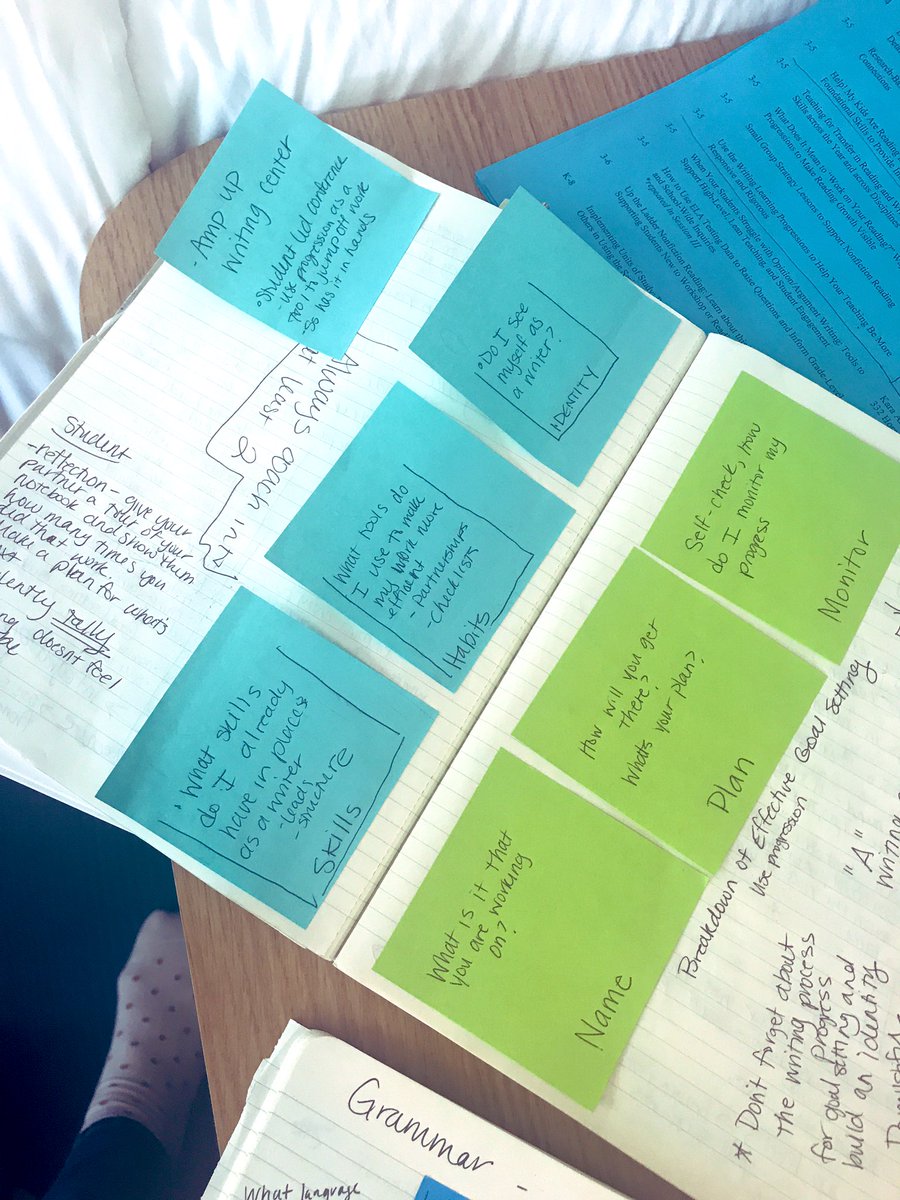 - AMP UP
Writing Center
• Student Led conference
- Use progression as a
tool to jump off more
- So has it in hands
Always coach in
at least 2
Student
- reflection - give your
partner a tour of your
notebook and show them
how many times you
did that work.
Make a plan for what's
rally
doesnt feel
• Do I see
myself as
a writer?
IDENTITY
What tools do
I use to make
my work more
efficient
- Partnerships
- checklists
Habits
• What skills
do I already
have in place
as a writer
- leads
- structure
Skills
Self-check, How
do I monitor my
progress
Monitor
How will you get
there?
Whats your plan?
Plan
What is it that
you are working
on?
Name
Breakdown of Effective Goal Setting
Use progression
"A"
writing
* Don't forget about
the writing process
Progress
for goal setting and
build an identity
Grammar
What language
K-8
3-6
3-5
3-5
3-5
3-5
3-5
3-5
Research-Ba
Help! My Kids Are Reading
Foundational Skills to Provide
Teaching for Transfer in Reading and Wri
Skills across the Year and across Discipline
What Does it Mean to "Work on Your Reading?"
Progressions to Make Reading Growth Visible
Small Group Strategy Lessons to Support Nonfiction Reading
Use the Writing Learning Progressions to Help Your Teaching Be More
Responsive and Rigorous
When Your Students Struggle with Opinion/Argument Writing: Tools to
Support High-Level Lean Teaching, and Student Engagement
How to Use ELA Testing Data to Raise Questions and Inform Grade-Level
and School-Wide Inquiries
*repeated in Session III
Up the Ladder Nonfiction Reading: Learn about the
Supporting Students New to Workshop or Rea
Implementing Units of Study
Others in Using the
Kara A